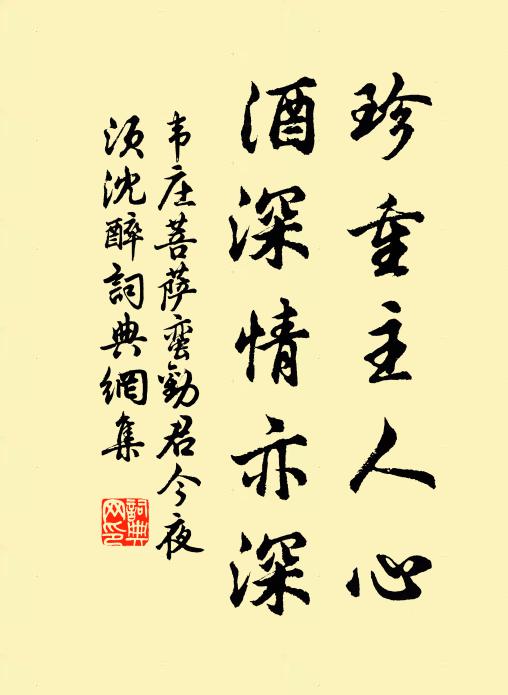 珍重主人心
酒深情亦深
韦庄菩萨蛮劝君今夜
须沈醉詞典網集
詞典
网印